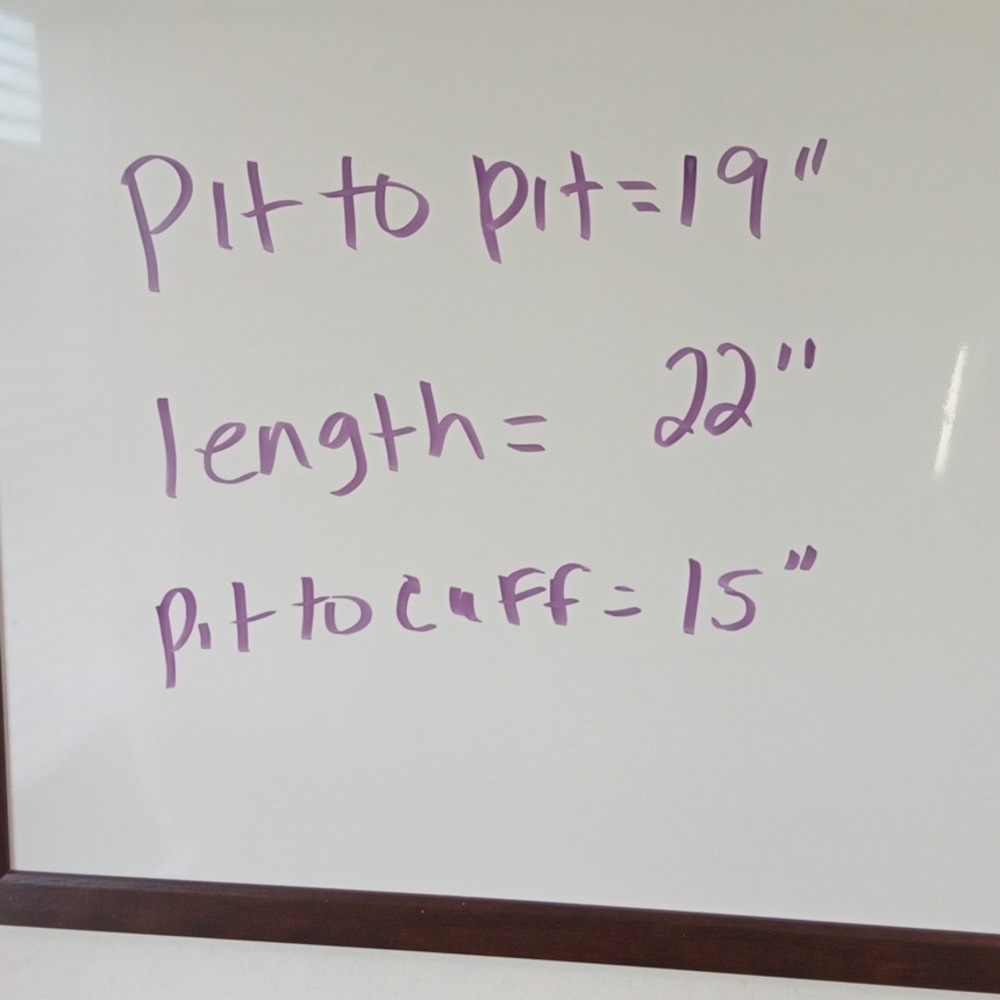 Pit to pit = 19"
length = 22"
pit to cuff = 15"